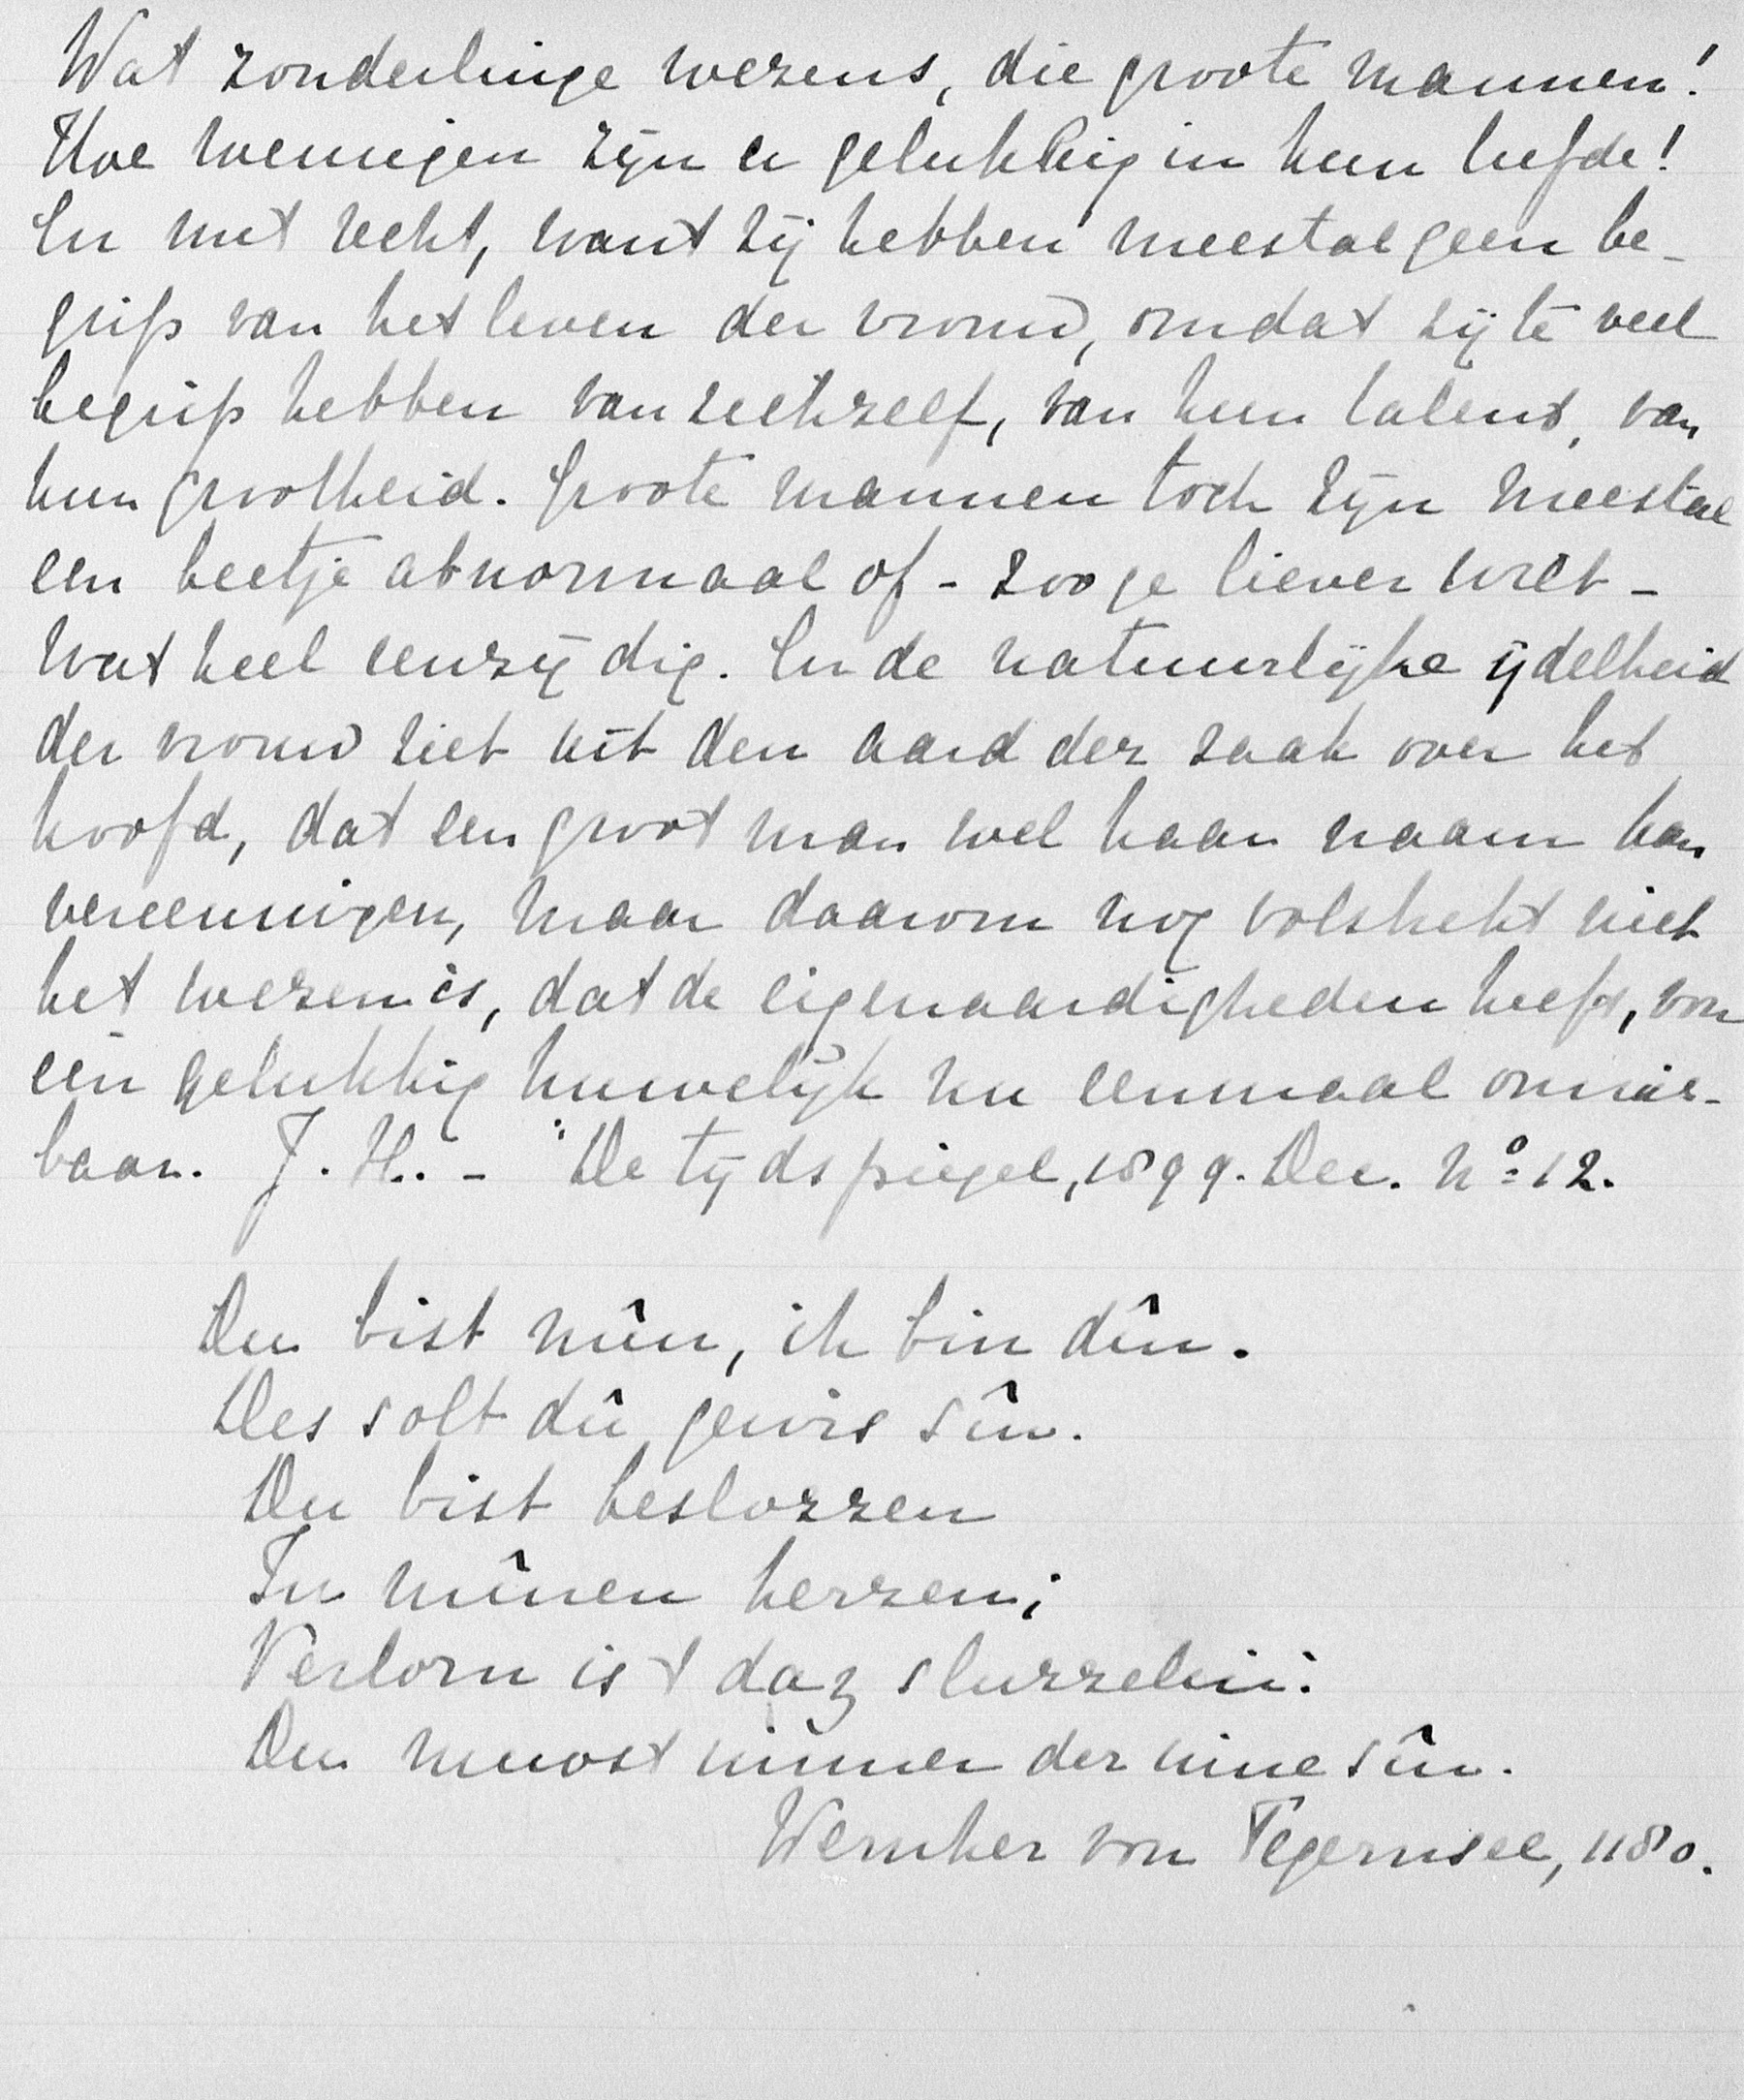 Wat zonderlinge wezens, die groote mannen!
Hoe weinigen zijn er gelukkig in hun liefde!
En met recht, want zij hebben meestal geen be-
grip van het leven der vrouw, omdat zij te veel
begrip hebben van zichzelf, van hun talent, van
hun grootheid. Groote mannen toch zijn meestal
een beetje abnormaal of - zoo je liever wilt -
wat heel eenzijdig. En de natuurlijke ijdelheid
der vrouw ziet uit den aard der zaak over het
hoofd, dat een groot man wel haar naam kan
vereeuwigen, maar daarom nog volstrekt niet
het wezen is, dat de eigenaardigheden heeft, voor
een gelukkig huwelijk nu eenmaal onmis-
baar. J. H. - "De tijdspiegel, 1899. Dec. No 12.
Du bist mîn, ich bin dîn.
Des solt dû gewis sîn.
Du bist beslozzen
In mînen herzen;
Verlorn ist daz sluzzelin:
Du muost immer der inne sîn.
Wernher von Tegernsee, 1180.